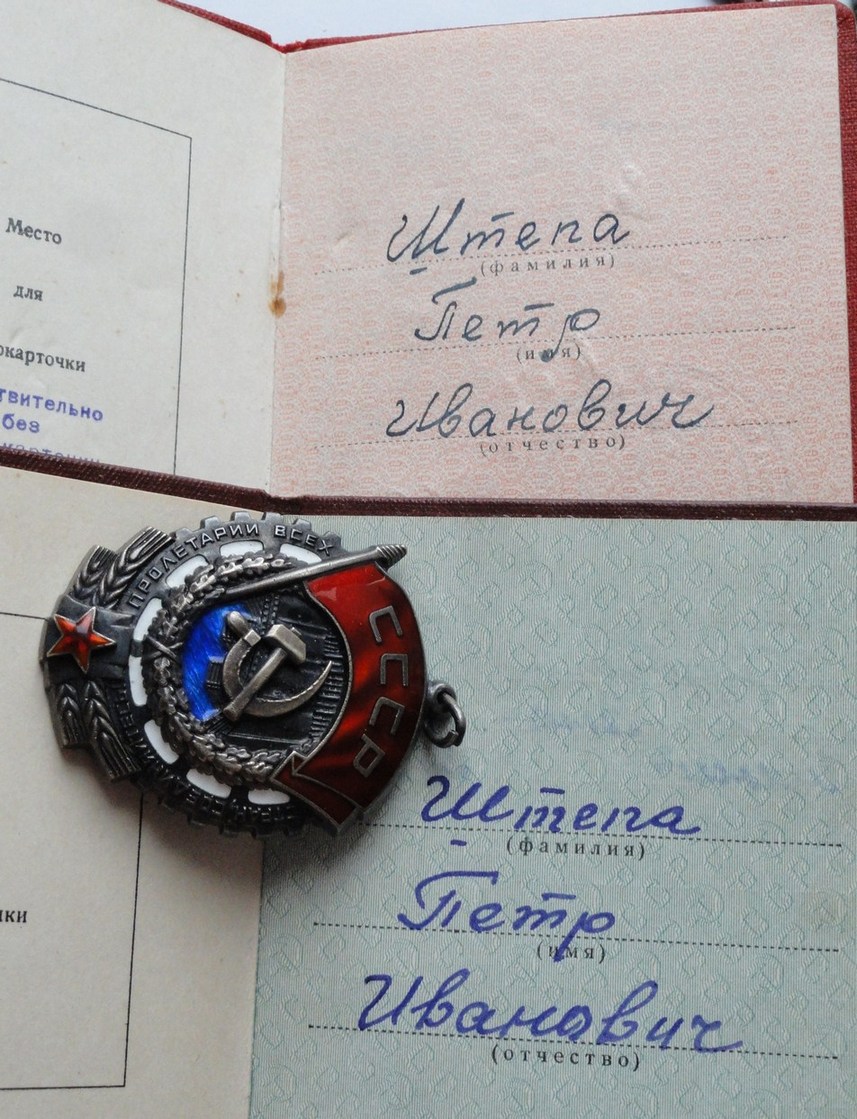 Место
для
окарточки
твительно
без
карточки
Штепа
(фамилия)
Петр
(имя)
Иванович
(отчество)
ПРОЛЕТАРИИ ВСЕХ
СССР
Штепа
(фамилия)
Петр
(имя)
Иванович
(отчество)
ки